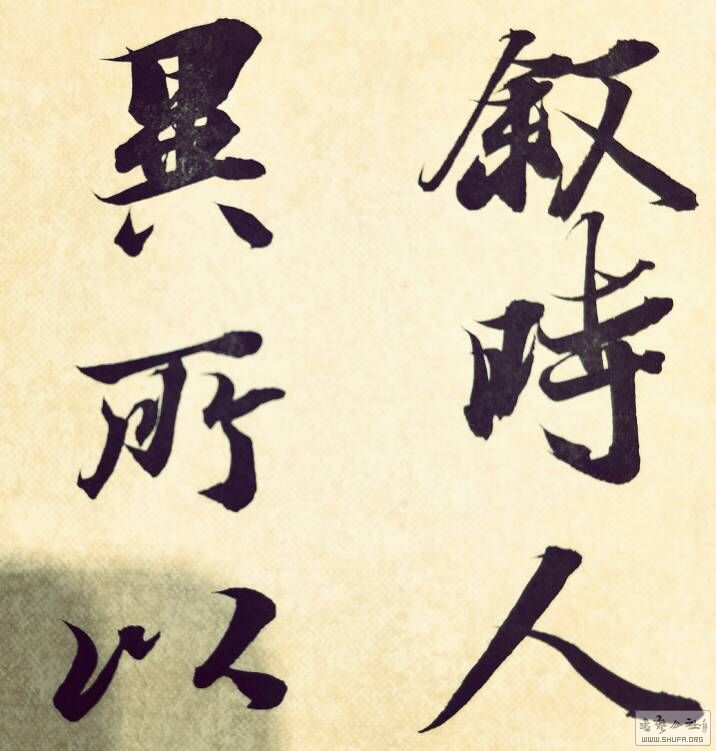 叙時人
異所以
書法公社
WWW.SHUFA.ORG